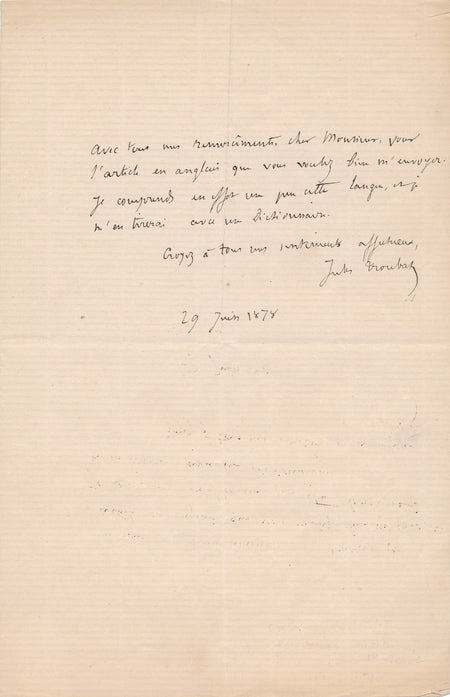 Avec tous mes remerciements, cher Monsieur, pour
l'article en anglais que vous voulez bien m'envoyer.
Je comprends en effet un peu cette langue, et je
m'en tirerai avec un Dictionnaire.
Croyez à tous mes sentiments affectueux,
Jules Troubat
29 Juin 1878